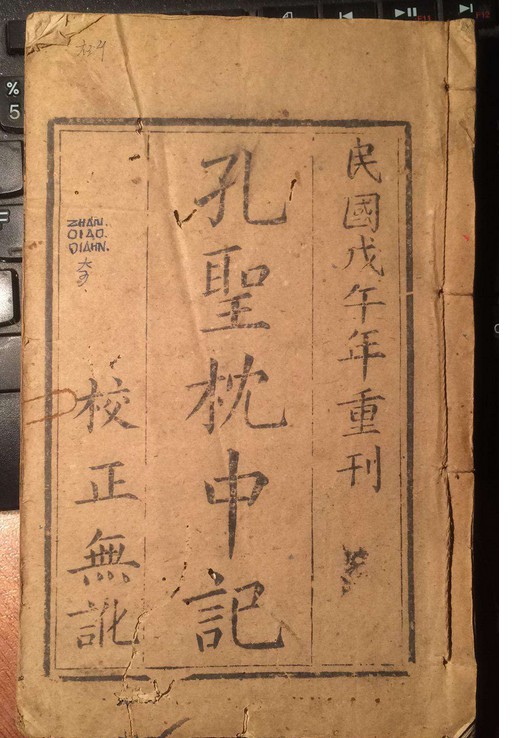 民國戊午年重刊
孔聖枕中記
校正無訛
ZHAN.
QIAO.
QIAHN.
%
5
F11
F12